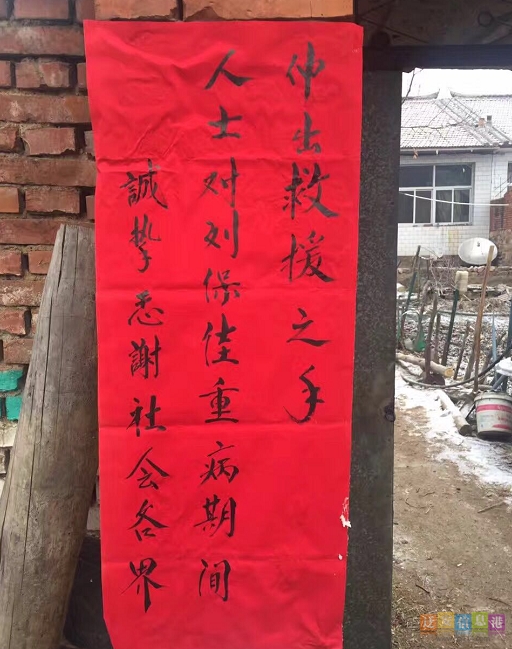 誠挚感謝社会各界
人士对刘保佳重病期间
伸出救援之手
信息港